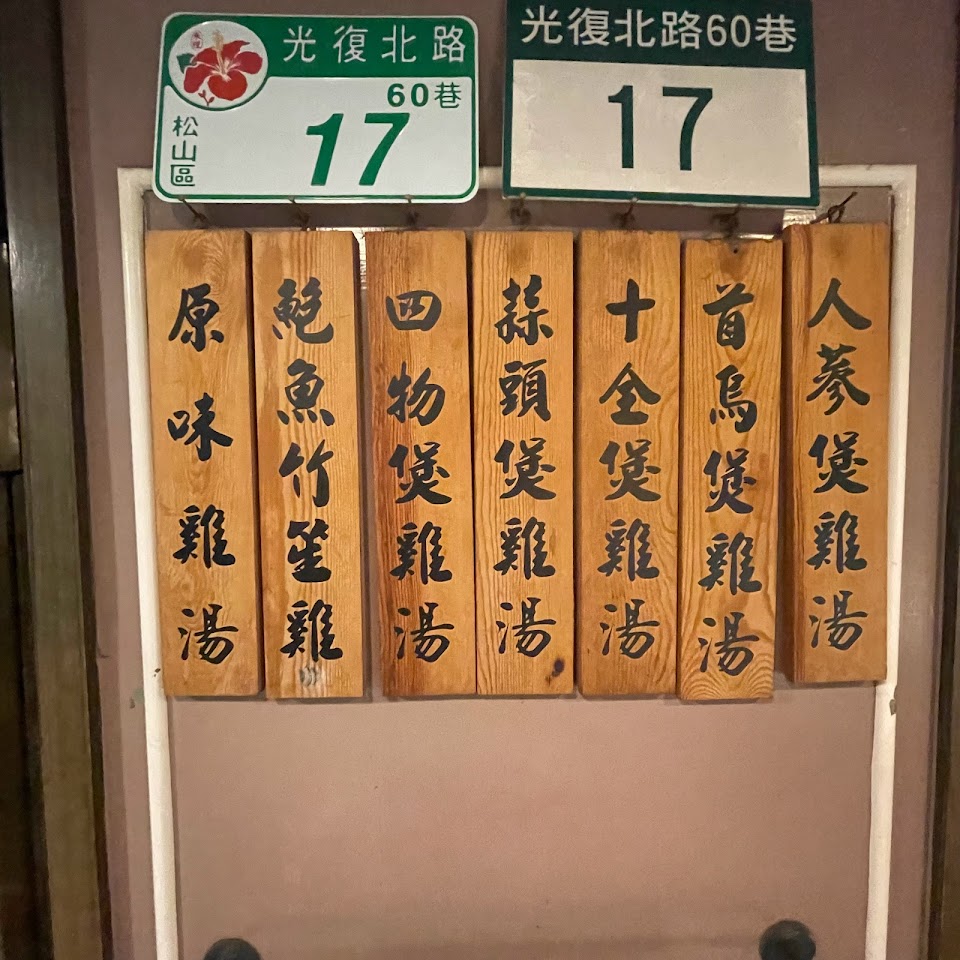 光復北路
60巷
松山區
17
光復北路60巷
17
人蔘煲雞湯
首烏煲雞湯
十全煲雞湯
蒜頭煲雞湯
四物煲雞湯
鮑魚竹笙雞
原味雞湯